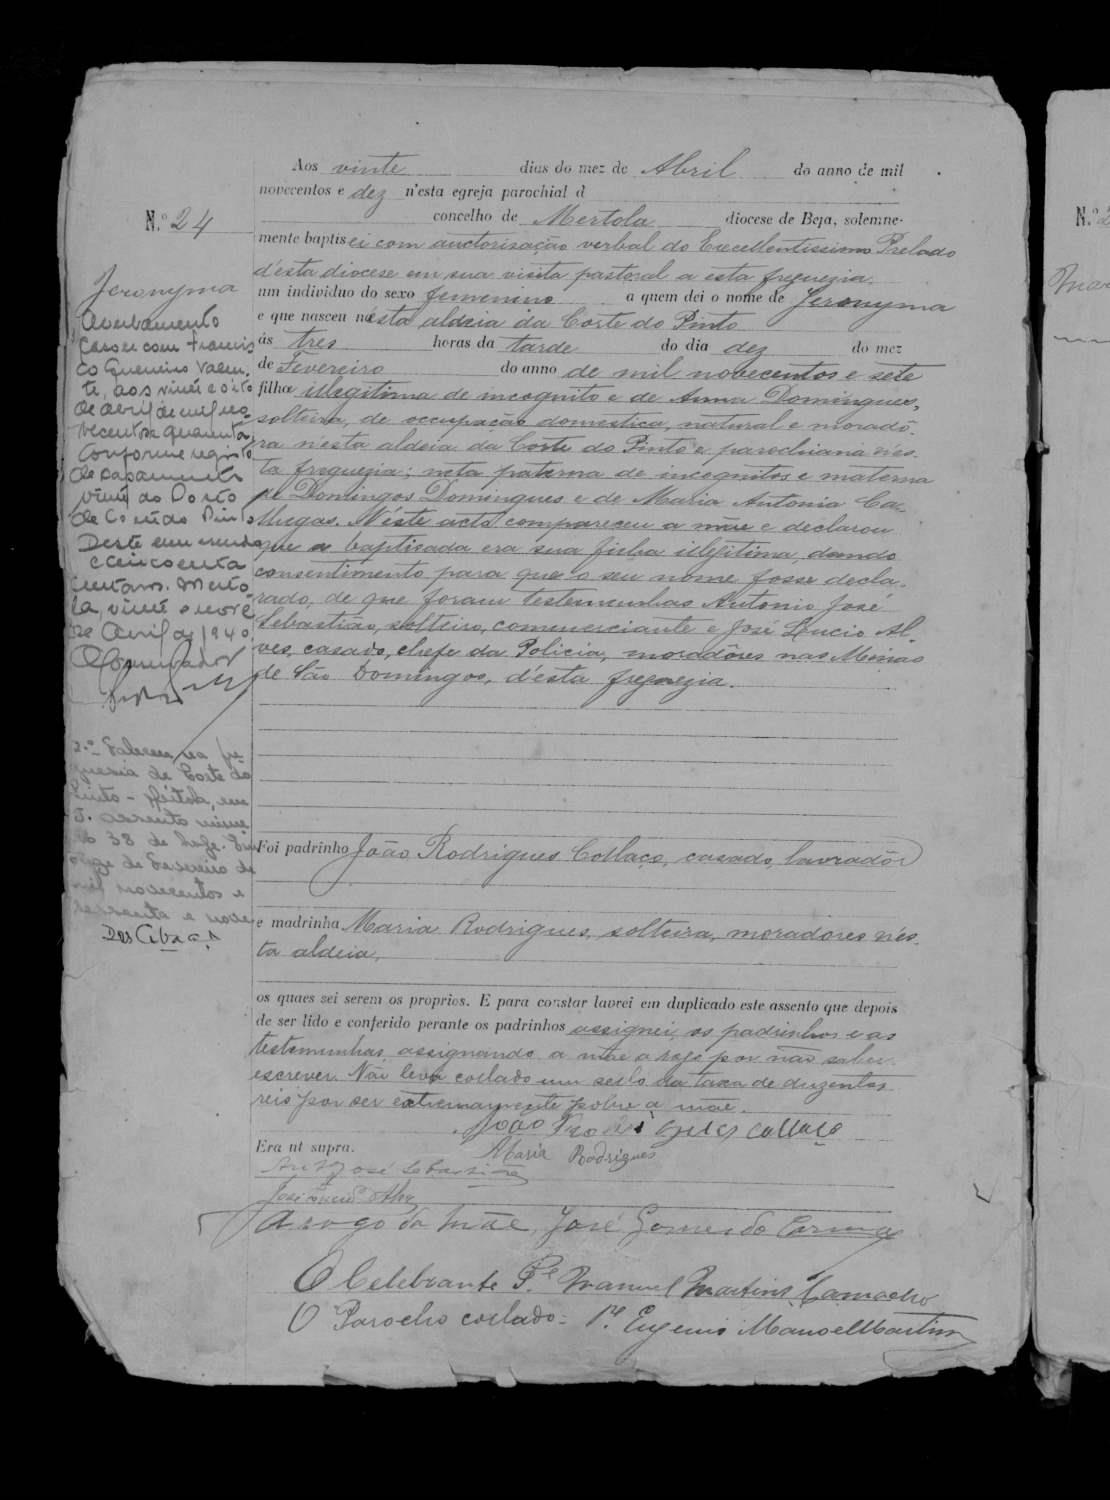 Aos vinte dias do mez de Abril do anno de mil
novecentos e dez n'esta egreja parochial d
concelho de Mertola diocese de Beja, solemne-
mente baptisei com auctorisação verbal do Excellentissimo Prelado
d'esta diocese em sua visita pastoral a esta freguezia.
um individuo do sexo femenino a quem dei o nome de Jeronyma
e que nasceu n'esta aldeia da Corte do Pinto
ás tres horas da tarde do dia dez do mez
de Fevereiro do anno de mil novecentos e sete
filha illegitima de incognito e de Anna Domingues,
solteira, de occupação domestica, natural e moradô-
ra n'esta aldeia da Corte do Pinto e parochiana n'es-
ta freguezia; neta paterna de incognitos e materna
de Domingos Domingues e de Maria Antonia Ca-
lhegas. N'éste acto compareceu a mãe e declarou
que a baptisada era sua filha illegitima, dando
consentimento para que o seu nome fosse decla-
rado, de que foram testemunhas Antonio José
Sebastião, solteiro, comenerciante e José Lucio Al-
ves, casado, chefe da Policia, moradôres nas Minas
de São Domingos, d'ésta freguezia.
Foi padrinho João Rodrigues Collaço, casado, lavradôr
e madrinha Maria Rodrigues, solteira, moradores n'és-
ta aldeia,
os quaes sei serem os proprios. E para constar lavrei em duplicado este assento que depois
de ser lido e conferido perante os padrinhos assignei, os padrinhos e as
testemunhas, assignando a mãe a rogo por não saber
escrever. Não leva collado um sello da taxa de duzentos
reis por ser extremamente pobre a mãe.
João Rodrigues Collaço
Era ut supra.
Maria Rodrigues
Ant José Sebastião
José Lucio Alves
A rogo da mãe, José Gomes do Carmo
O Celebrante P.e Manuel Martins Camacho
O Parocho collado = P.e Eugenio Manoel Martins
N.º 24
Jeronyma
Averbamento
Casou com Francis
co Guerreiro Valen
te, aos vinte e oito
de abril de mil no-
vecentos e quarenta,
conforme registo
de casamento
vinte do Posto
de Corte do Pinto
Deste um escudo
e cincoenta
centavos. Merto
la, vinte e nove
de Abril de 1940.
O Conservador
2.º Faleceu na fre
guesia de Corte do
Pinto - Mértola, em
o assento núme
ro 38 de hoje. Em
onze de Fevereiro de
mil novecentos e
sessenta e nove
N.º 2